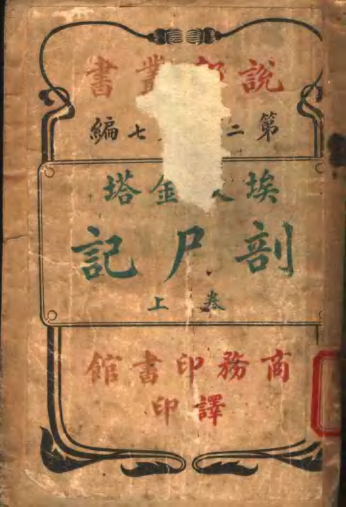 說部叢書
第二七編
埃及金塔
剖尸記
卷上
商務印書館
譯印